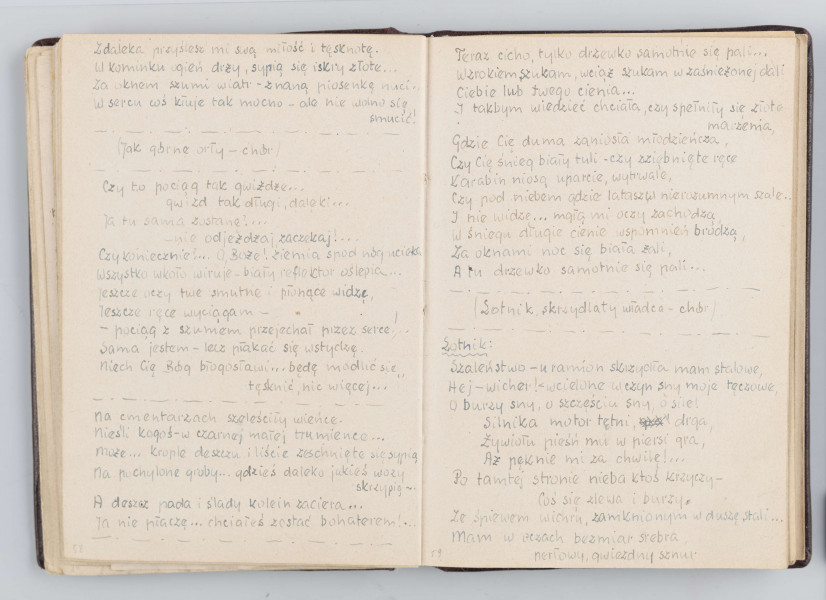 Zdaleka przyślesz mi swą miłość i tęsknotę.
W kominku ogień drży, sypią się iskry złote...
Za oknem szumi wiatr - znaną piosenkę nuci..
W sercu coś kłuje tak mocno - ale nie wolno się
smucić!
(Jak górne orły - chór)
Czy to pociąg tak gwiżdże...
gwizd tak długi, daleki...
Ja tu sama zostanę!...
nie odjeżdżaj zaczekaj!...
Czy koniecznie?... O, Boże! ziemia spod nóg ucieka
Wszystko wkoło wiruje - biały reflektor oślepia...
Jeszcze oczy twe smutne i płonące widzę,
Jeszcze ręce wyciągam -
- pociąg z szumem przejechał przez serce!...
Sama jestem - lecz płakać się wstydzę.
Niech Cię Bóg błogosławi... będę modlić się,
tęsknić, nic więcej...
Na cmentarzach szeleściły wieńce.
Nieśli kogoś - w czarnej małej trumience...
Może... krople deszczu i liście zeschnięte się sypią
Na pochylone groby... gdzieś daleko jakieś wozy
skrzypią -
A deszcz pada i ślady kolein zaciera...
Ja nie płaczę... chciałeś zostać bohaterem!...
Teraz cicho, tylko drzewko samotnie się pali...
Wzrokiem szukam, wciąż szukam w zaśnieżonej dali
Ciebie lub twego cienia...
I takbym wiedzieć chciała, czy spełniły się złote
marzenia,
Gdzie Cię duma zaniosła młodzieńcza,
Czy Cię śnieg biały tuli - czy zziębnięte ręce
Karabin niosą uparcie, wytrwale,
Czy pod niebem gdzie latasz w nierozumnym szale..
I nie widzę... mgłą mi oczy zachodzą,
W śniegu długie cienie wspomnień brodzą,
Za oknami noc się biała żali,
A tu drzewko samotnie się pali...
(Lotnik, skrzydlaty władca - chór)
Lotnik:
Szaleństwo - u ramion skrzydła mam stalowe,
Hej - wicher! - wcielone w czyn sny moje tęczowe,
O burzy sny, o szczęściu sny, o sile!
Silnika motor tętni, drga,
Żywiołu pieśń mi w piersi gra,
Aż pęknie mi za chwilę!...
Po tamtej stronie nieba ktoś krzyczy -
Coś się zlewa i burzy,
Ze śpiewem wichru, zamknionym w duszę stali...
Mam w oczach bezmiar srebra,
perłowy, gwiezdny sznur
59